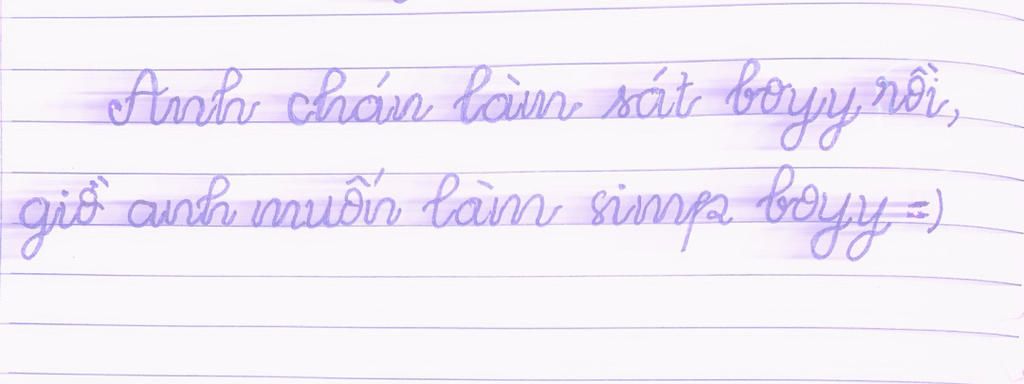 Anh chán làm sát boyy rồi,
giờ anh muốn làm simp boyy =)